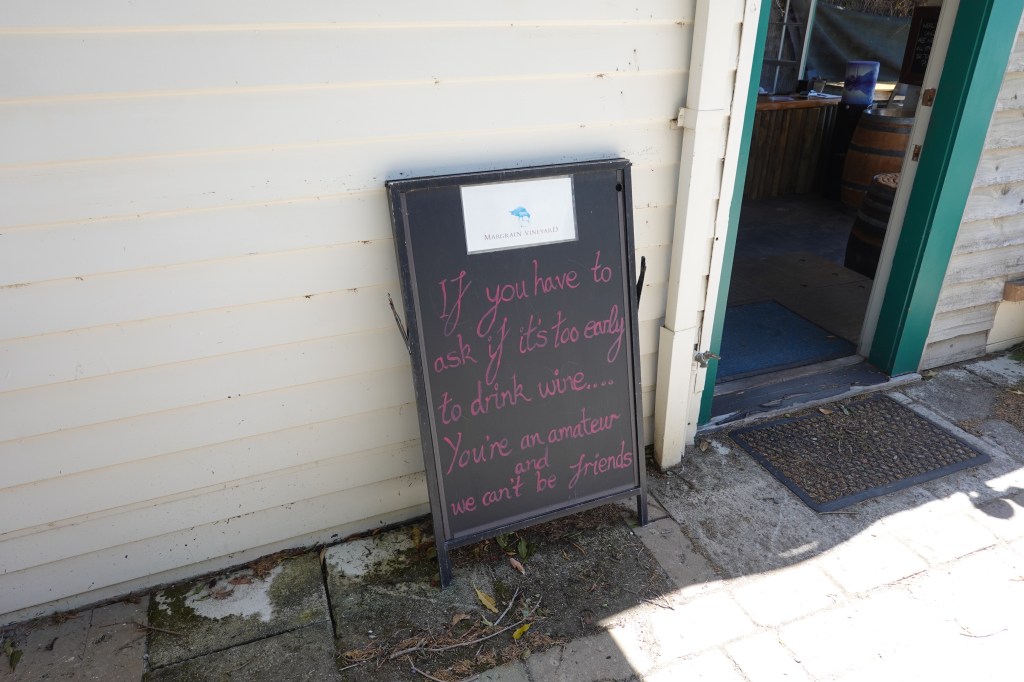 MARGRAIN VINEYARD
If you have to
ask if it's too early
to drink wine....
You're an amateur
and
we can't be friends